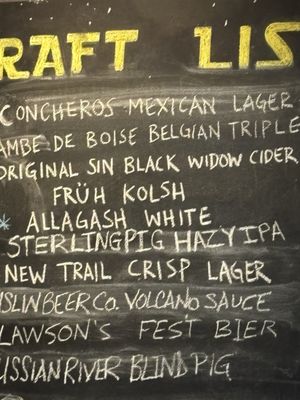 RAFT LIS
CONCHEROS MEXICAN LAGER
AMBE DE BOISE BELGIAN TRIPLE
ORIGINAL SIN BLACK WIDOW CIDER
FRÜH KOLSH
* ALLAGASH WHITE
STERLINGPIG HAZY IPA
NEW TRAIL CRISP LAGER
ISLIN BEER CO. VOLCANO SAUCE
LAWSON'S FEST BIER
USSIAN RIVER BLIND PIG